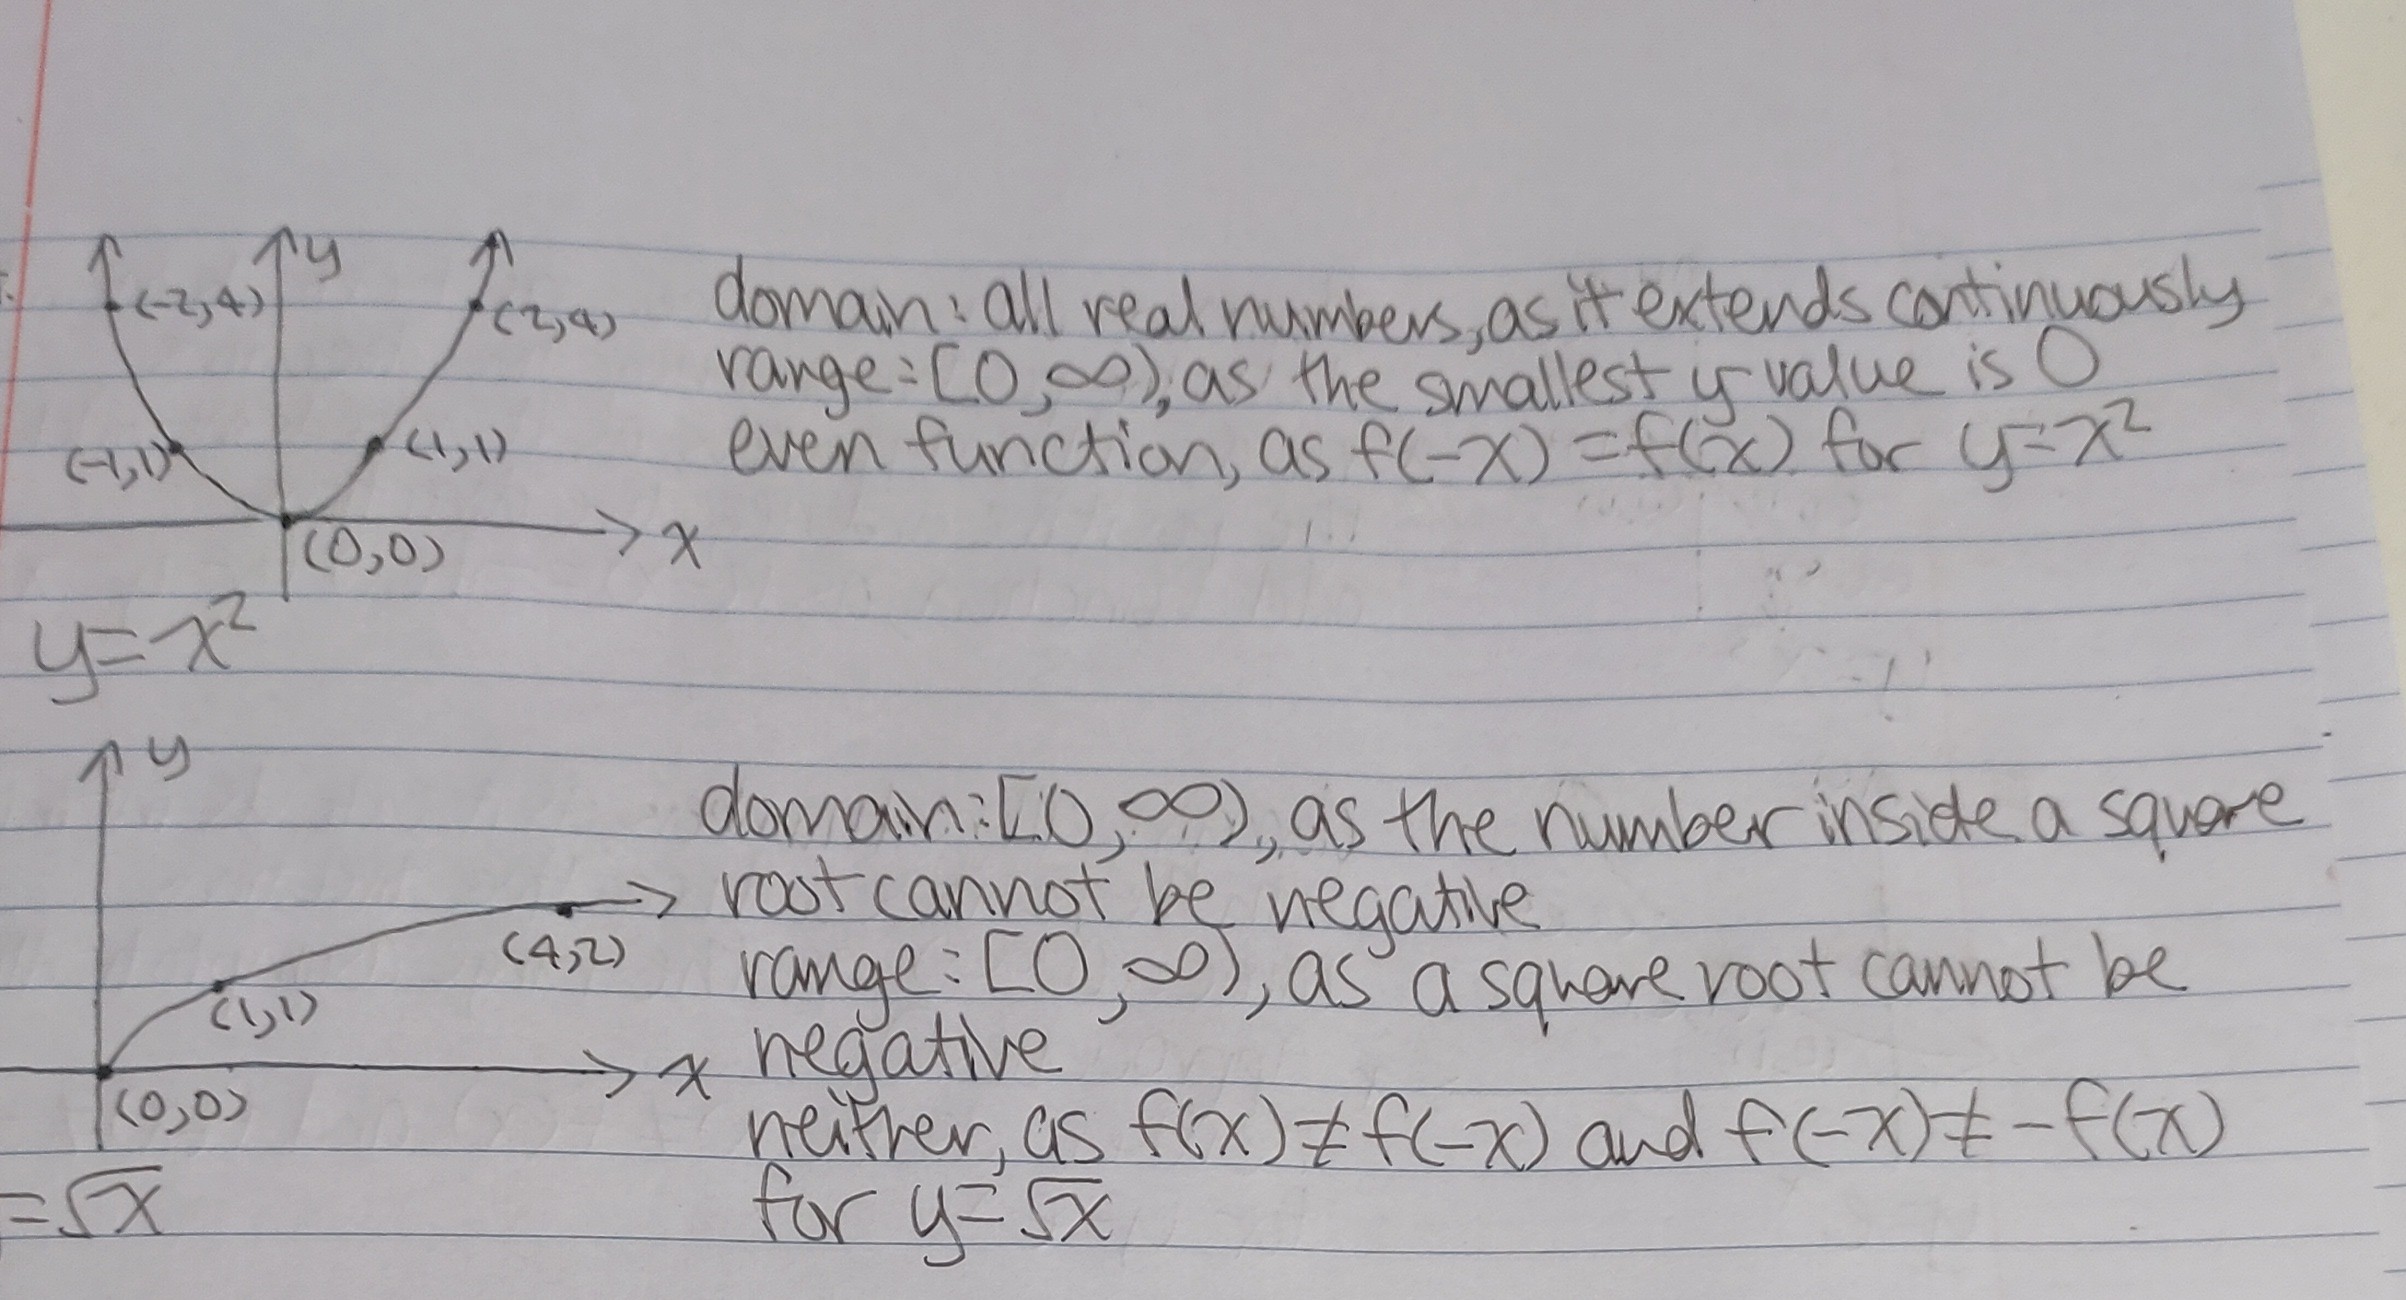 y
(-2,4)
(2,4)
(-1,1)
(1,1)
(0,0)
x
y=x²
domain: all real numbers, as it extends continuously
range: [0,∞), as the smallest y value is 0
even function, as f(-x) = f(x) for y=x²
y
(4,2)
(1,1)
x
(0,0)
=√x
domain: [0,∞), as the number inside a square
root cannot be negative
range: [0,∞), as a square root cannot be
negative
neither, as f(x)≠f(-x) and f(-x)≠-f(x)
for y=√x